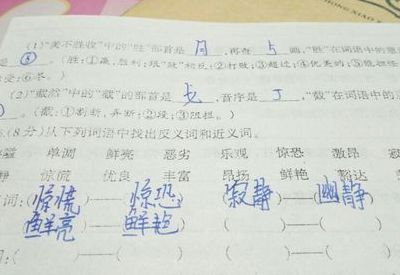 HONG XIAO
(1)"美不胜收"中的"胜"部首是 月 ,再查 5 画,"胜"在词语中的意
是 。(胜:①赢,胜利,跟"败"相反;②打败;③超过;④优美的;⑤能担任
受;⑥尽。)
中的"截"的部首是 戈 ,音序是 J ,"截"在词语中的
。(截:①割断,弄断;②段;③阻拦。)
(8分)从下列词语中找出反义词和近义词。
单调 鲜亮 恶劣 乐观 惊恐 激昂 寂
静 惊慌 优良 丰富 昂扬 鲜艳 豁达
词:(惊慌)——(惊恐) (寂静)——(幽静)
(鲜亮)——(鲜艳) ( )——( )
:( )——( ) ( )——(